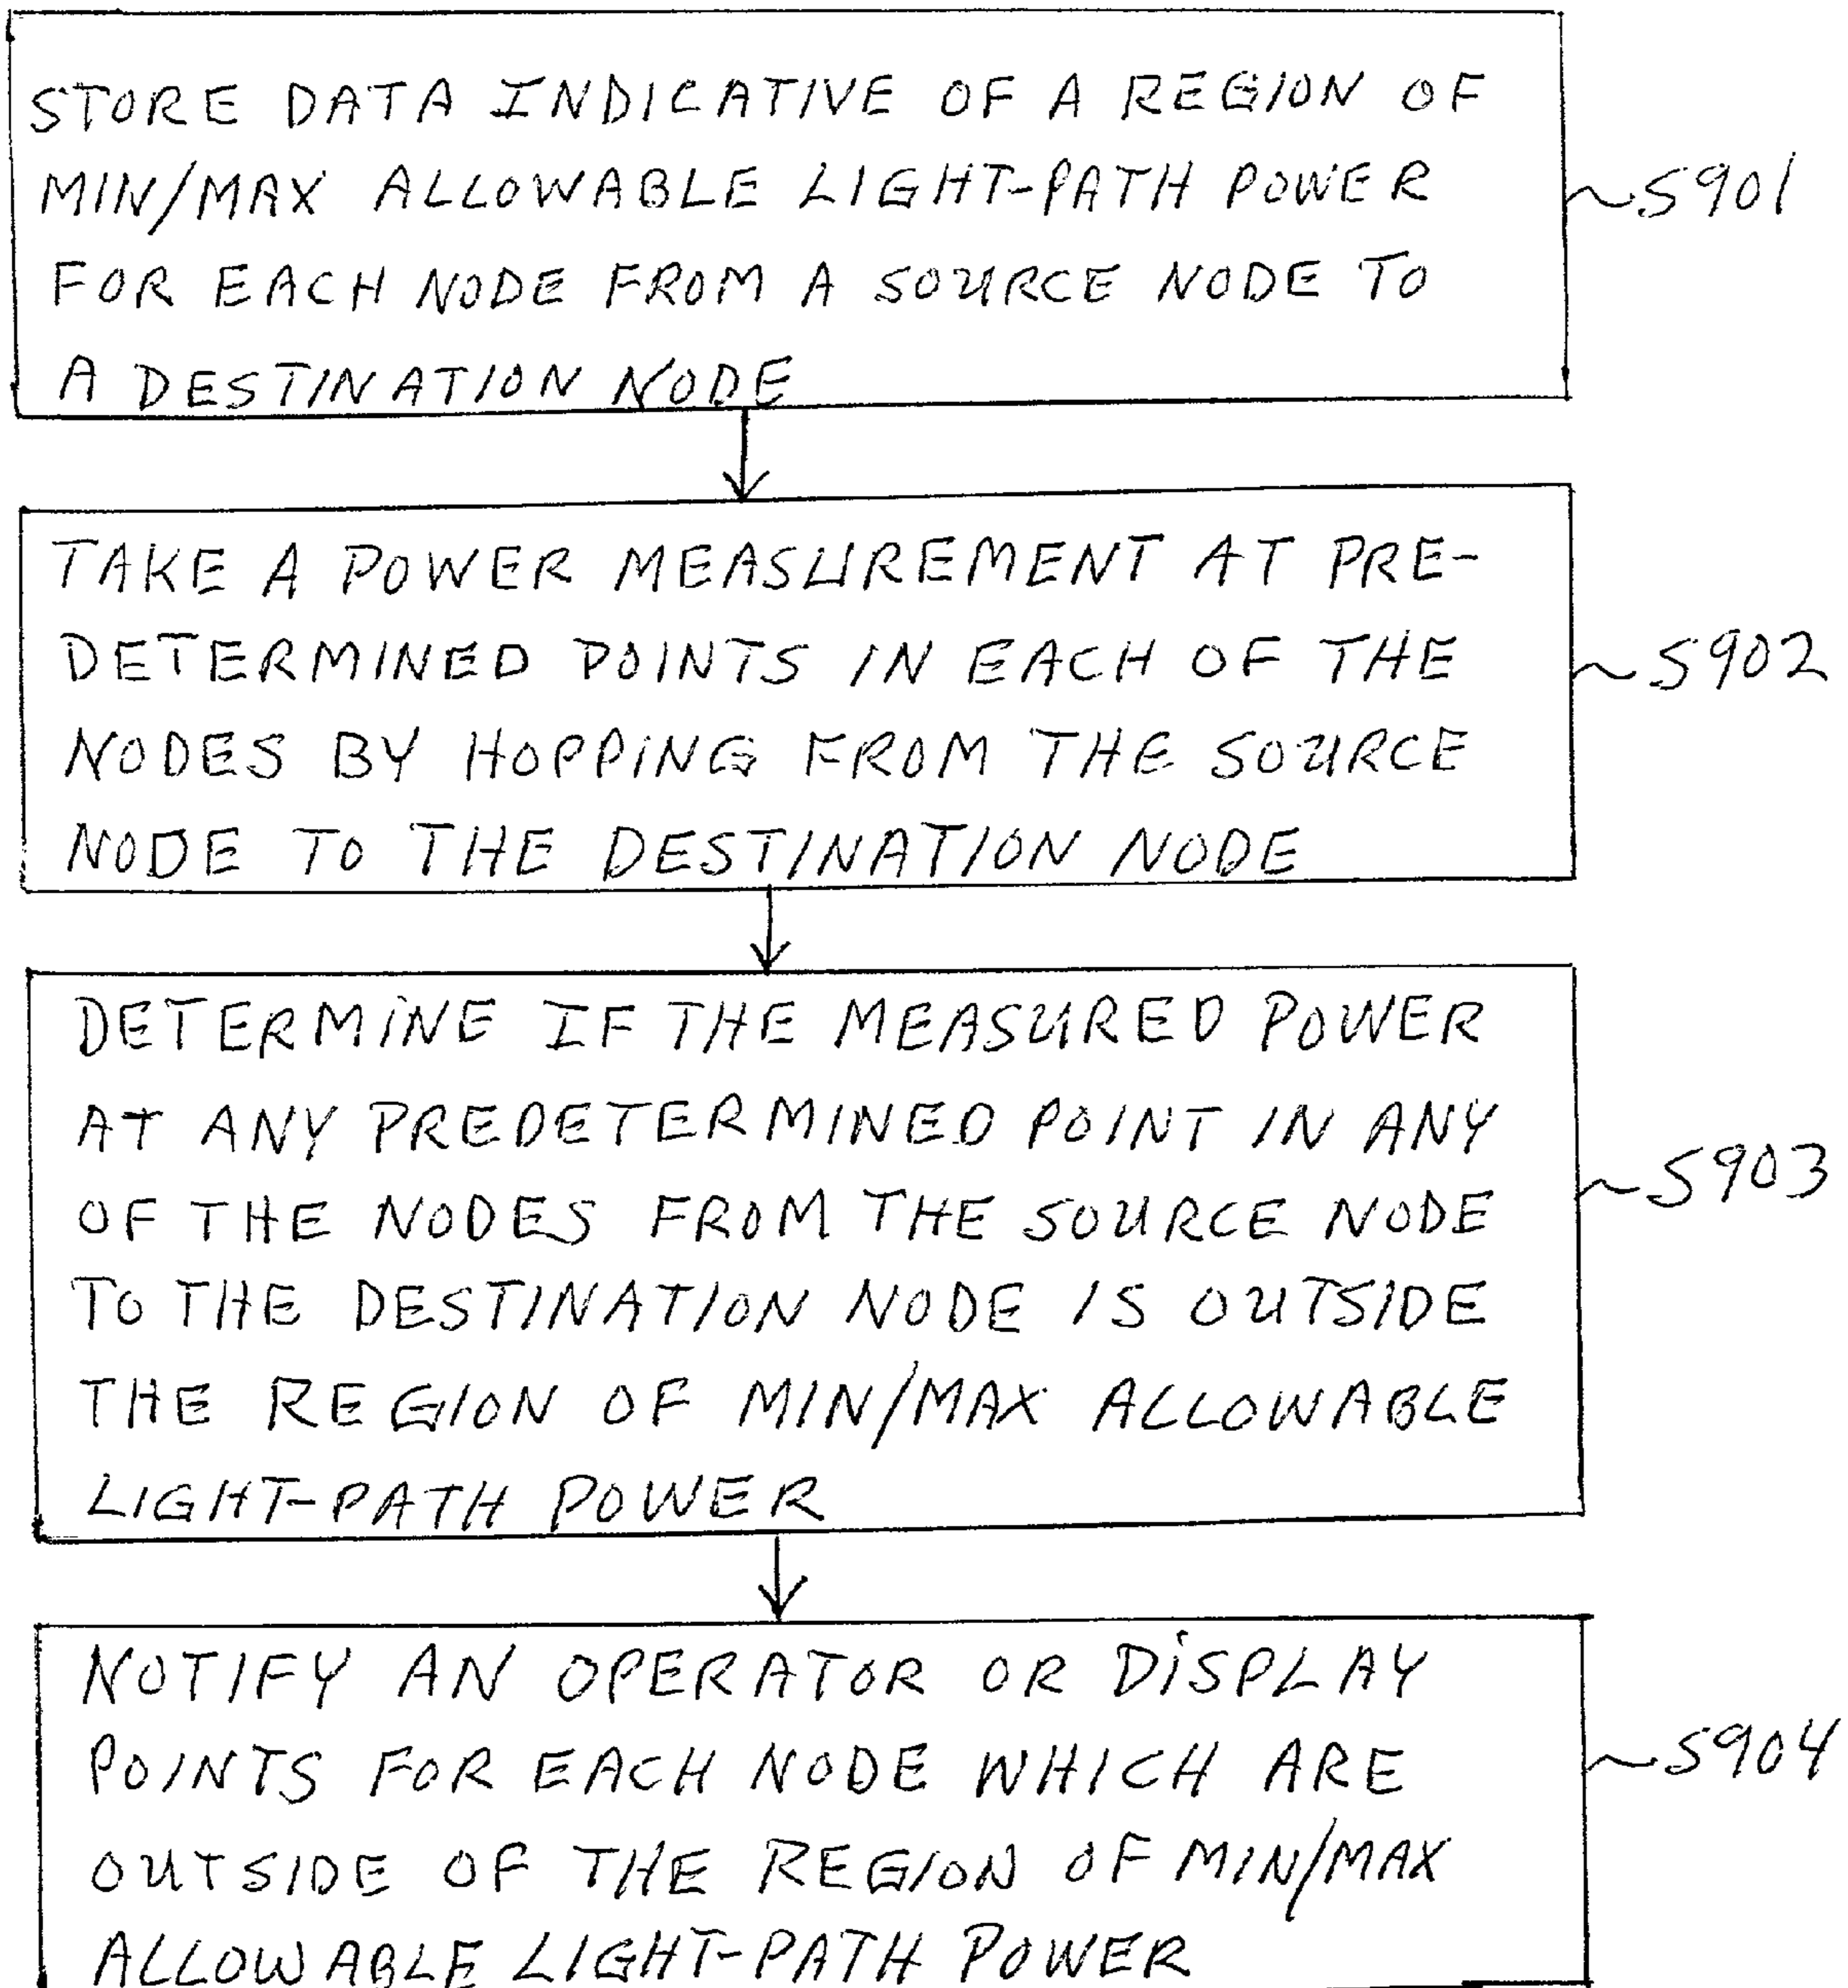 STORE DATA INDICATIVE OF A REGION OF
MIN/MAX ALLOWABLE LIGHT-PATH POWER
FOR EACH NODE FROM A SOURCE NODE TO
A DESTINATION NODE
S901
TAKE A POWER MEASUREMENT AT PRE-
DETERMINED POINTS IN EACH OF THE
NODES BY HOPPING FROM THE SOURCE
NODE TO THE DESTINATION NODE
S902
DETERMINE IF THE MEASURED POWER
AT ANY PREDETERMINED POINT IN ANY
OF THE NODES FROM THE SOURCE NODE
TO THE DESTINATION NODE IS OUTSIDE
THE REGION OF MIN/MAX ALLOWABLE
LIGHT-PATH POWER
S903
NOTIFY AN OPERATOR OR DISPLAY
POINTS FOR EACH NODE WHICH ARE
OUTSIDE OF THE REGION OF MIN/MAX
ALLOWABLE LIGHT-PATH POWER
S904